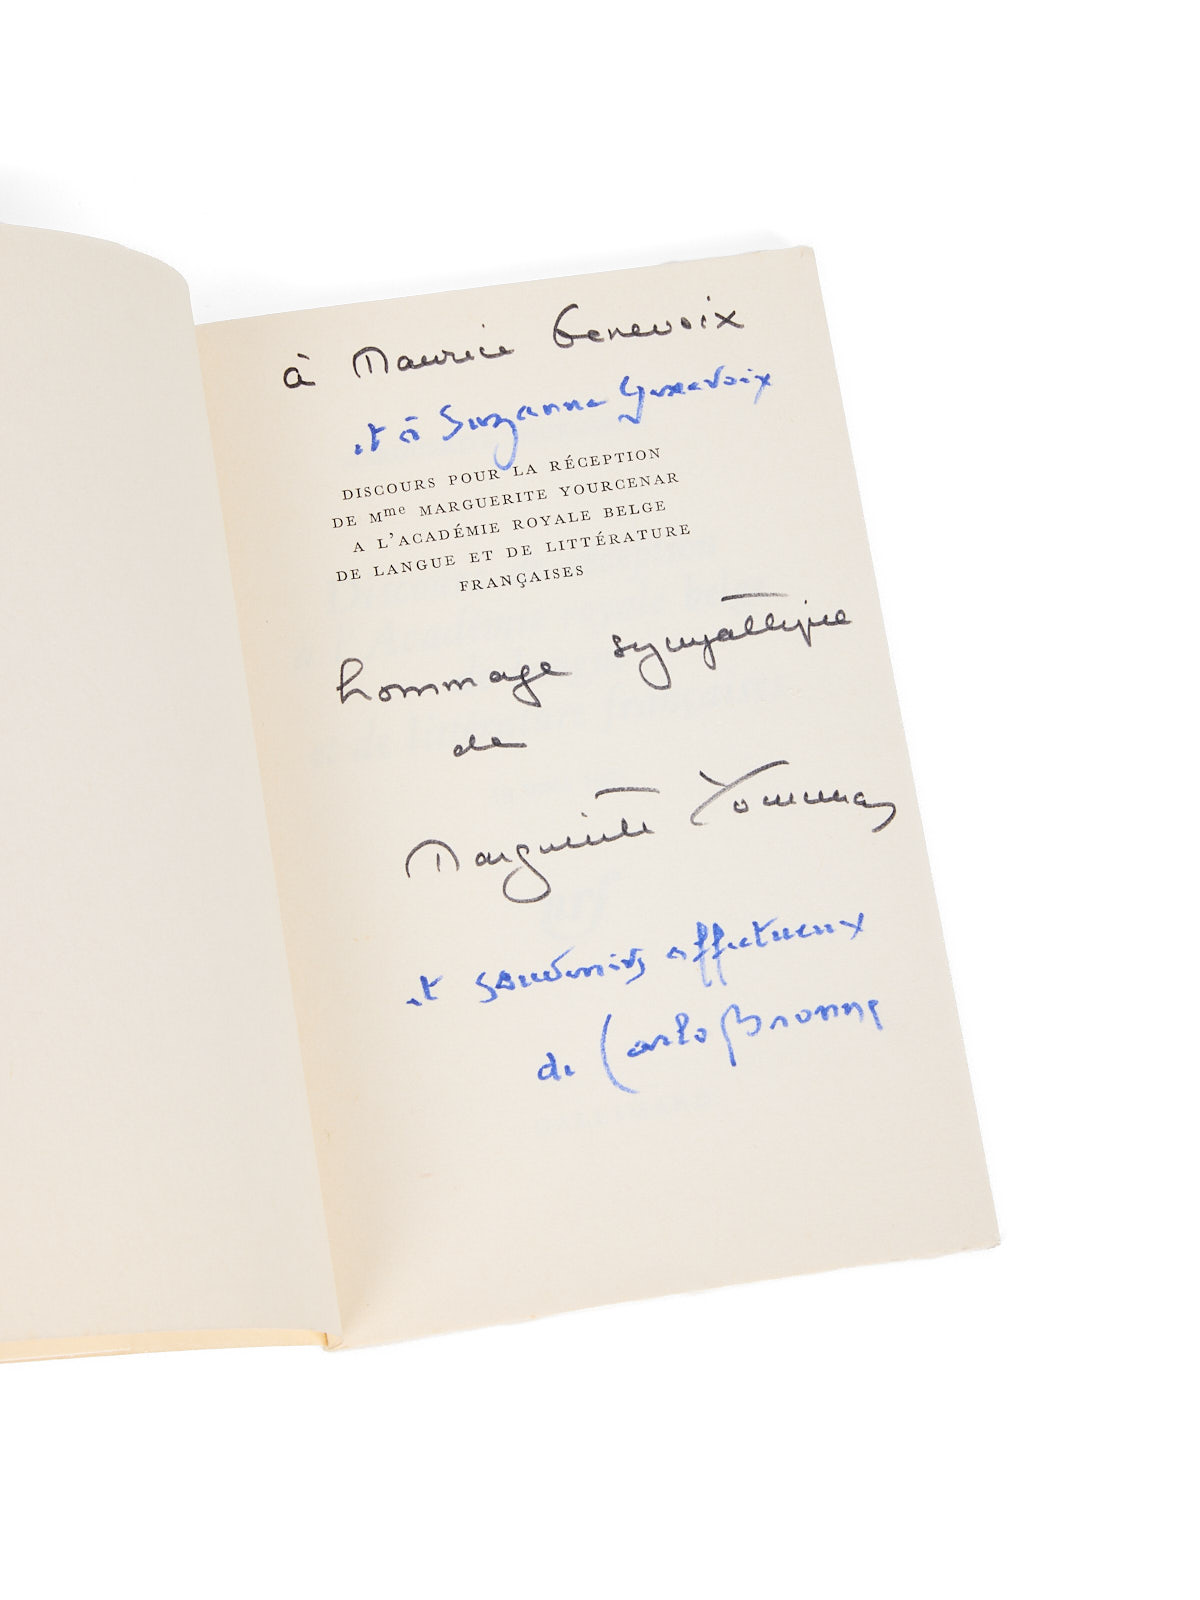 à Maurice Genevoix
et à Suzanne Genevoix
DISCOURS POUR LA RÉCEPTION
DE Mme MARGUERITE YOURCENAR
A L'ACADÉMIE ROYALE BELGE
DE LANGUE ET DE LITTÉRATURE
FRANÇAISES
hommage sympathique
de
Marguerite Yourcenar
et souvenirs affectueux
de Carlo Bronne